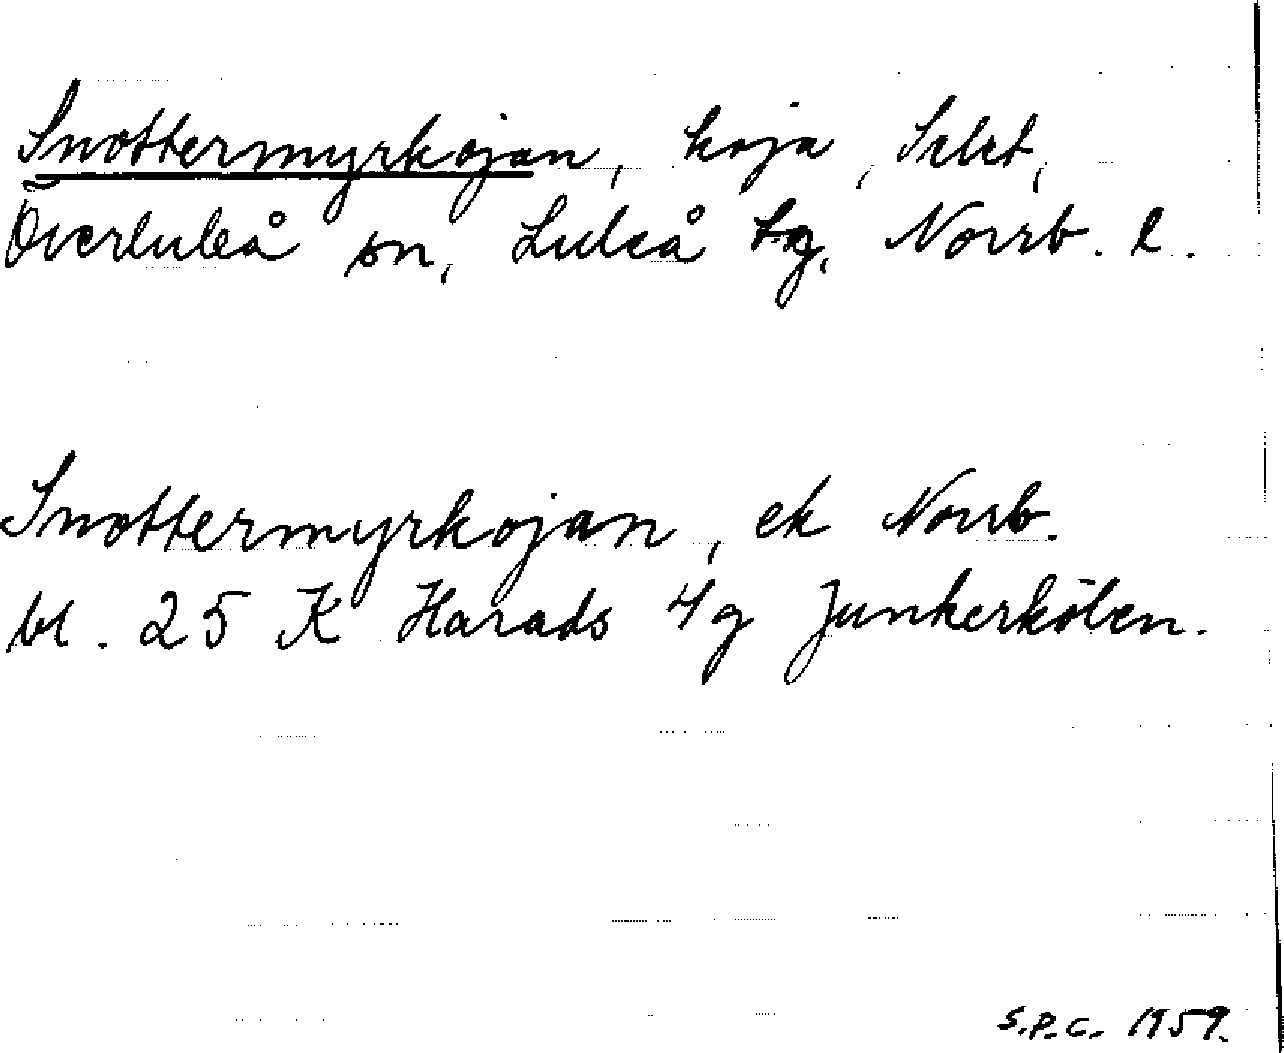 Snottermyrkojan, koja, Selet,
Överluleå sn, Luleå tg, Norrb. l.
Snottermyrkojan, ek Norrb.
bl. 25 K Harads 4g Junkerkölen.
S.P.C. 1959.